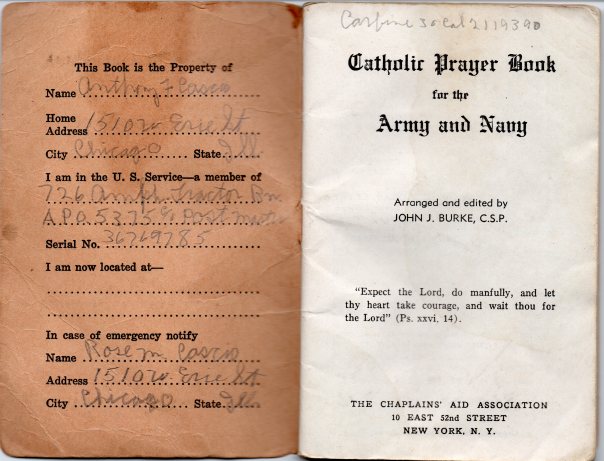 This Book is the Property of
Name Anthony F Casco
Home
Address 1510 W Erie St
City Chicago State Ill
I am in the U. S. Service—a member of
726 Amph Tractor Bn
A.P.O. 5375 % Post
Serial No. 36769785
I am now located at—
In case of emergency notify
Name Rose M Casco
Address 1510 W Erie St
City Chicago State Ill
Carbine 30 Cal 2119390
Catholic Prayer Book
for the
Army and Navy
Arranged and edited by
JOHN J. BURKE, C.S.P.
“Expect the Lord, do manfully, and let
thy heart take courage, and wait thou for
the Lord” (Ps. xxvi, 14).
THE CHAPLAINS’ AID ASSOCIATION
10 EAST 52nd STREET
NEW YORK, N. Y.